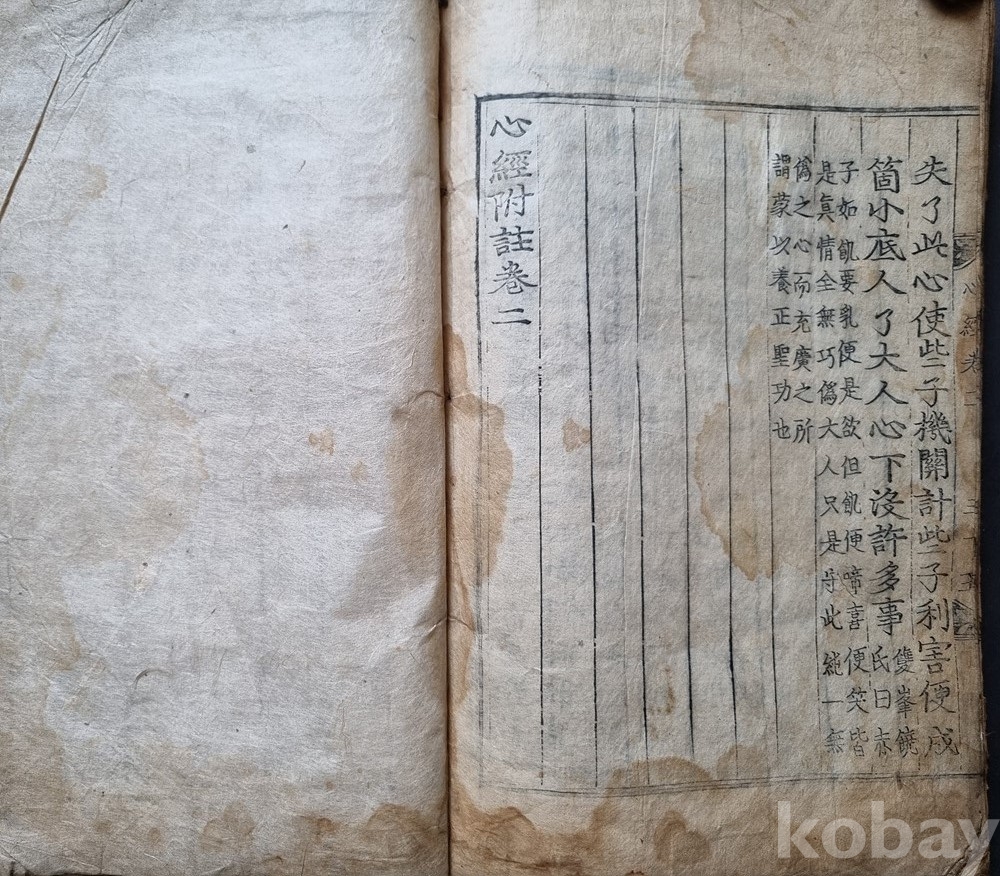 心經卷二
三十五
失了此心使些子機關計些子利害便成
箇小底人了大人心下沒許多事雙峯饒氏曰赤
子如飢要乳便是欲但飢便啼喜便笑皆
是眞情全無巧僞大人只是守此純一無
僞之心而充廣之所
謂蒙以養正聖功也
心經附註卷二
kobay